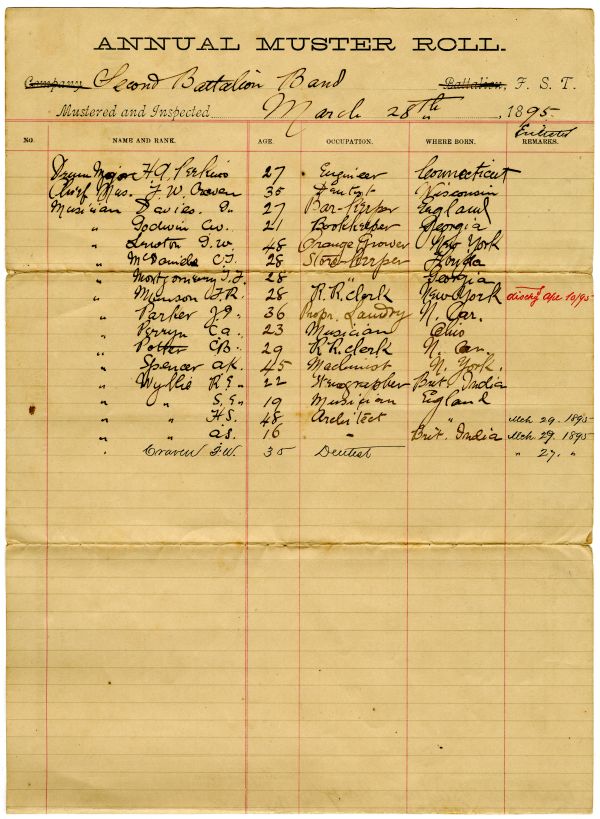 ANNUAL MUSTER ROLL.
Company Second Battalion Band Battalion, F. S. T.
Mustered and Inspected March 28th 1895
Enlisted
NO. NAME AND RANK. AGE. OCCUPATION. WHERE BORN. REMARKS.
Drum Major H.A. Perkins 27 Engineer Connecticut
Chief Mus. F. W. Craven 35 Dentist Wisconsin
Musician Davies. D. 27 Bar-Keeper England
" Godwin C.W. 21 Bookkeeper Georgia
" D.W. 48 Orange Grower New York
" McDaniels C.J. 28 Store-Keeper Florida
" Montgomery T.F. 28 Georgia
" Munson F.R. 28 R.R. clerk New York disch'g Apl 10/95
" Parker J.D. 36 Propr. Laundry N. Car.
" Perryn C.A. 23 Musician Ohio
" Potter C.B. 29 R.R. clerk N. Car.
" Spencer A.K. 45 Machinist N. York.
" Wyllie R.E. 22 Stenographer Brit. India
" " S.E. 19 Musician England
" " H.S. 48 Architect " Mch 29. 1895
" " A.S. 16 - Brit. India Mch. 29. 1895
" Craven F.W. 35 Dentist " 27. "